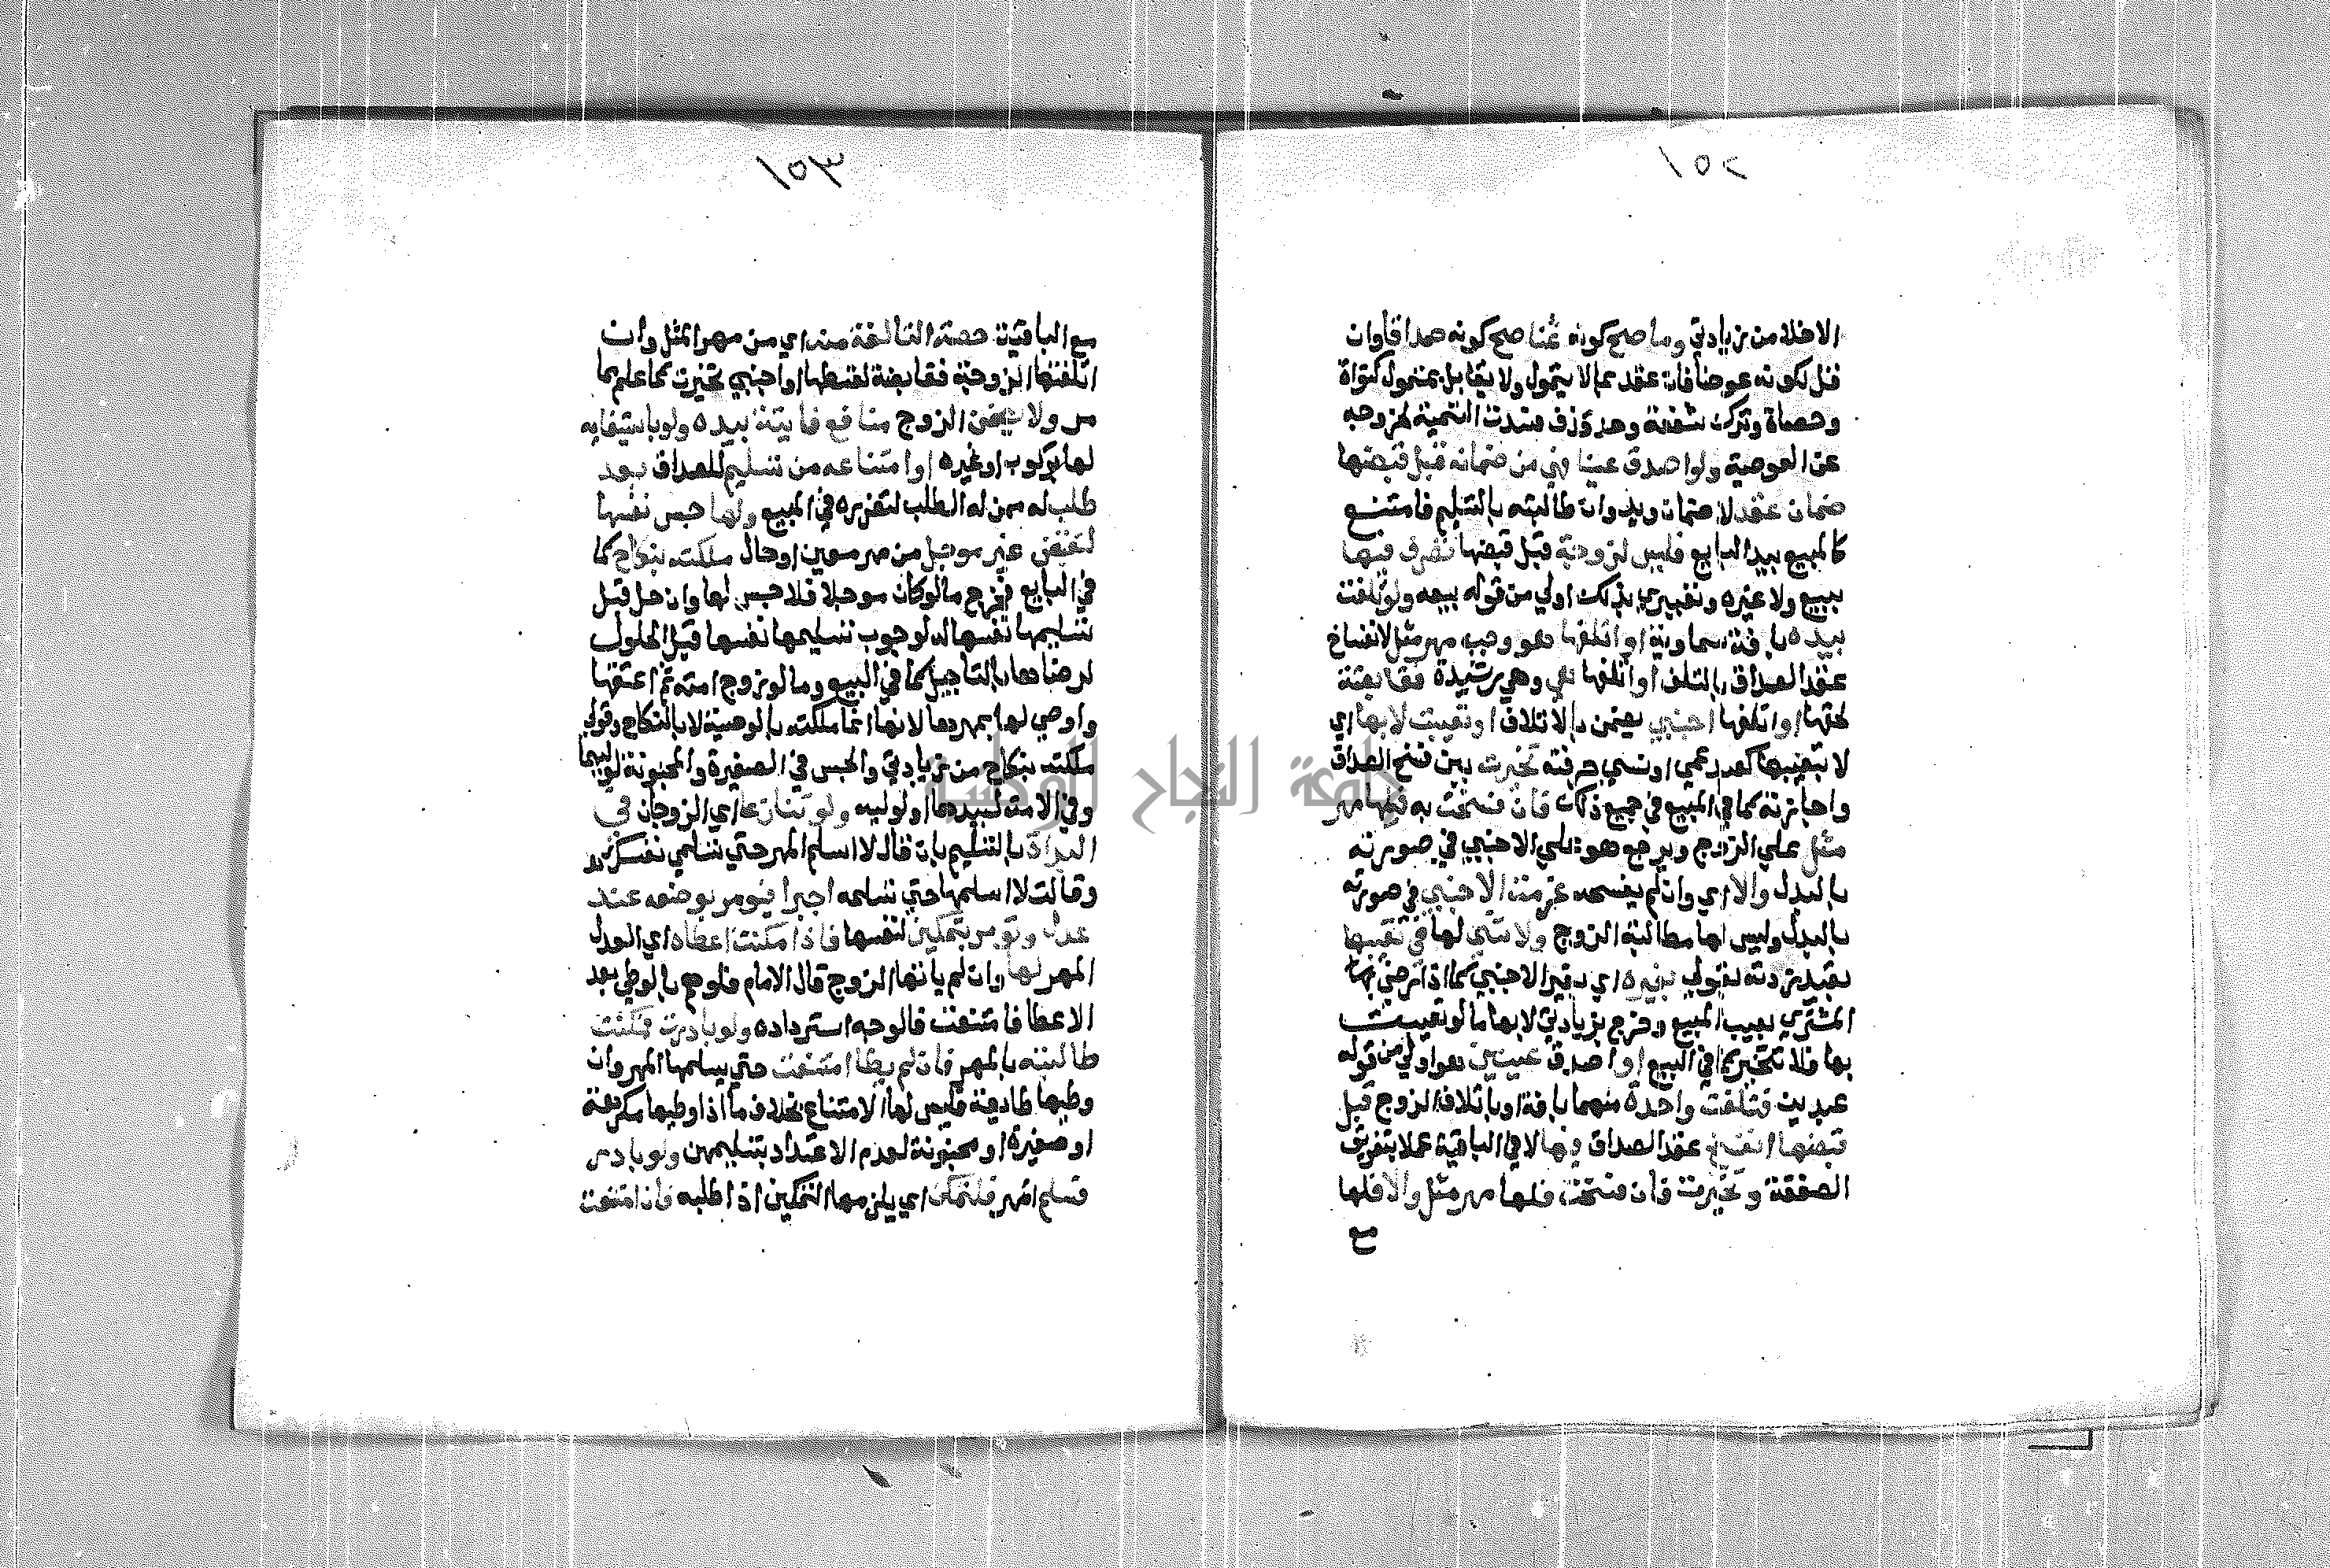 ١٥٢
الاخلة من زيادتي وما صح كونه ثمنا صح كونه صداقا وان
قل لكونه عوضا فان عقد بما لا يتمول ولا يقابل بمتمول كنواة
وحصاة وترك شفعة وحد قذف فسدت التسمية لخروجه
عن العوضية ولو اصدق عينا فهي من ضمانه قبل قبضها
ضمان عقد لا ضمان يد وان طالبته بالتسليم فامتنع
كالمبيع بيد البايع فليس لزوجة قبل قبضها تصرف فيها
ببيع ولا غيره وتعبيري بذلك اولى من قوله بيعه ولو تلفت
بيده بافة سماوية او اتلفها هو وجب مهر مثل لانفساخ
عقد الصداق بالتلف او اتلفها هي وهي رشيدة فقابضة
لحقها او اتلفها اجنبي يضمن بالاتلاف او تعيبت لا بها اي
لا بتعيبها كعبد عمي او نسي حرفته تخيرت بين فسخ الصداق
واجازته كما في المبيع في جميع ذلك فان فسخت به فلها مهر
مثل علي الزوج ويرجع هو علي الاجنبي في صورته
بالبدل والا اي وان لم يفسخه غرمت الاجنبي في صورته
بالبدل وليس لها مطالبة الزوج ولا شي لها في تعيبها
بقيد زدته بقولي بغيره اي بغير الاجنبي كما اذا رضي بها
المشتري بعيب المبيع وخرج بزيادتي لا بها ما لو تعيبت
بها فلا تتخير كما في البيع او اصدق عينين هو اولي من قوله
عبدين فتلفت واحدة منهما بافة او باتلاف الزوج قبل
قبضها انفسخ عقد الصداق فيها لا في الباقية عملا بتفريق
الصفقة وتخيرت فان فسخت فلها مهر مثل والا فلها
مع
١٥٣
مع الباقية حصة التالفة منه اي من مهر المثل وان
اتلفتها الزوجة فقابضة لقسطها او اجنبي تخيرت كما علم مما
مر ولا يضمن الزوج منافع فايتة بيده ولو باستيفايه
لها بركوب او غيره او امتناعه من تسليم للصداق بعد
طلب له ممن له الطلب لتقرره في المبيع ولها حبس نفسها
لتقبض غير موجل من مهر معين او حال ملكته بنكاح كما
في البايع فخرج ما لو كان موجلا فلا حبس لها وان حل قبل
تسليمها نفسها له لوجوب تسليمها نفسها قبل الحلول
لرضاها بالتاجيل كما في البيع وما لو زوج امته ثم اعتقها
واوصي لها بمهرها لانها انما ملكته بالوصية لا بالنكاح وقولي
ملكته بنكاح من زيادتي والحبس في الصغيرة والمجنونة لوليهما
وفي الامة لسيدها او لوليه ولو تنازعا اي الزوجان في
البداة بالتسليم بان قال لا اسلم المهر حتي تسلمي نفسك
وقالت لا اسلمها حتي تسلمه اجبرا فيومر بوضعه عند
عدل وتومر بتمكين لنفسها فاذا مكنت اعطاه اي العدل
المهر لها وان لم ياتها الزوج قال الامام فلو هم بالوطي بعد
الاعطا فامتنعت فالوجه استرداده ولو بادرت فمكنت
طالبته بالمهر فان لم يطا امتنعت حتي يسلمها المهر وان
وطيها طايعة فليس لها الامتناع بخلاف ما اذا وطيها مكرهة
او صغيرة او مجنونة لعدم الاعتداد بتسليمهن ولو بادر
فسلم المهر فلتمكن اي يلزمها التمكين اذا طلبه فان امتنعت
جامعة النجاح الوطنية